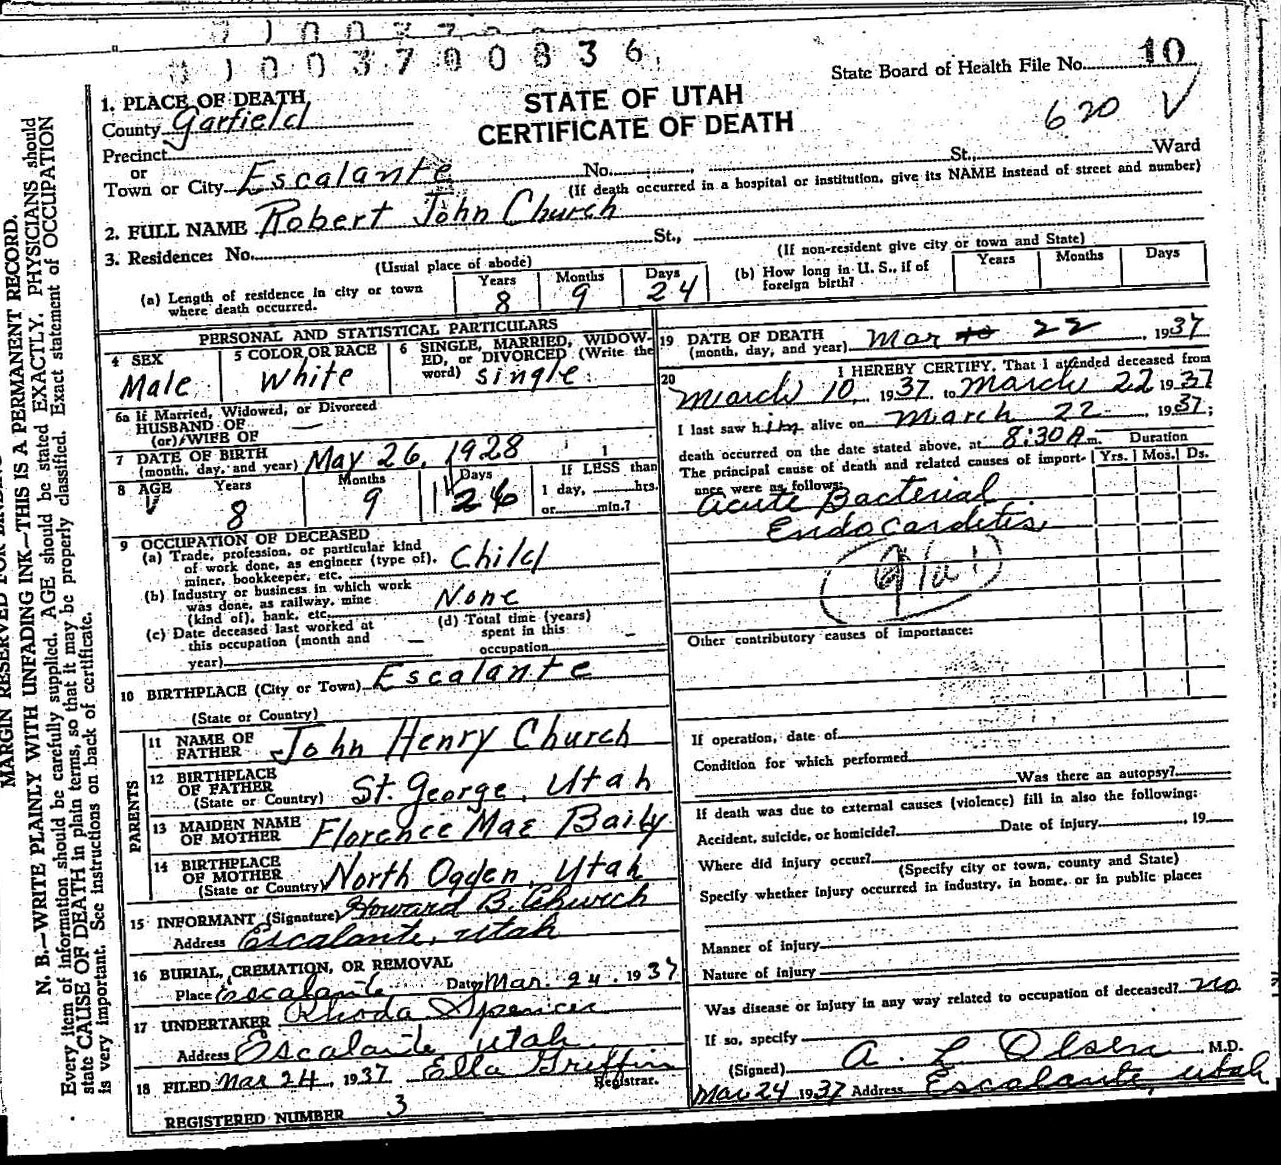 1003700836
State Board of Health File No. 10
STATE OF UTAH
CERTIFICATE OF DEATH
620 V
1. PLACE OF DEATH
County Garfield
Precinct
or
Town or City Escalante No. St., Ward
(If death occurred in a hospital or institution, give its NAME instead of street and number)
2. FULL NAME Robert John Church
3. Residence: No. St.,
(Usual place of abode)
(If non-resident give city or town and State)
(a) Length of residence in city or town where death occurred. Years 8 Months 9 Days 24
(b) How long in U. S., if of foreign birth? Years Months Days
PERSONAL AND STATISTICAL PARTICULARS
4 SEX Male
5 COLOR OR RACE White
6 SINGLE, MARRIED, WIDOWED, or DIVORCED (Write the word) single
6a If Married, Widowed, or Divorced
HUSBAND OF
(or) WIFE OF —
7 DATE OF BIRTH
(month, day, and year) May 26, 1928
8 AGE Years 8 Months 9 Days 26
If LESS than
1 day, hrs.
or min.?
9 OCCUPATION OF DECEASED
(a) Trade, profession, or particular kind
of work done, as engineer (type of),
miner, bookkeeper, etc. Child
(b) Industry or business in which work
was done, as railway, mine
(kind of), bank, etc. None
(c) Date deceased last worked at
this occupation (month and
year) —
(d) Total time (years)
spent in this
occupation —
10 BIRTHPLACE (City or Town) Escalante
(State or Country)
PARENTS
11 NAME OF
FATHER John Henry Church
12 BIRTHPLACE
OF FATHER
(State or Country) St. George, Utah
13 MAIDEN NAME
OF MOTHER Florence Mae Baily
14 BIRTHPLACE
OF MOTHER
(State or Country) North Ogden, Utah
15 INFORMANT (Signature) Howard B. Church
Address Escalante, Utah
16 BURIAL, CREMATION, OR REMOVAL
Place Escalante Date Mar. 24, 1937
17 UNDERTAKER Rhoda Spencer
Address Escalante Utah
18 FILED Mar 24, 1937 Ella Griffin
Registrar.
REGISTERED NUMBER 3
19 DATE OF DEATH
(month, day, and year) Mar 22, 1937
20 I HEREBY CERTIFY, That I attended deceased from
March 10, 1937, to March 22 1937
I last saw him alive on March 22, 1937;
death occurred on the date stated above, at 8:30 A m.
Duration
Yrs. Mos. Ds.
The principal cause of death and related causes of importance were as follows:
Acute Bacterial
Endocarditis
Other contributory causes of importance:
If operation, date of
Condition for which performed
Was there an autopsy?
If death was due to external causes (violence) fill in also the following:
Accident, suicide, or homicide? Date of injury , 19
Where did injury occur?
(Specify city or town, county and State)
Specify whether injury occurred in industry, in home, or in public place:
Manner of injury
Nature of injury
Was disease or injury in any way related to occupation of deceased? no
If so, specify
(Signed) A. L Olsen M.D.
Mar 24 1937 Address Escalante, Utah
N. B.—WRITE PLAINLY WITH UNFADING INK—THIS IS A PERMANENT RECORD.
Every item of information should be carefully supplied. AGE should be stated EXACTLY. PHYSICIANS should
state CAUSE OF DEATH in plain terms, so that it may be properly classified. Exact statement of OCCUPATION
is very important. See instructions on back of certificate.
MARGIN RESERVED FOR